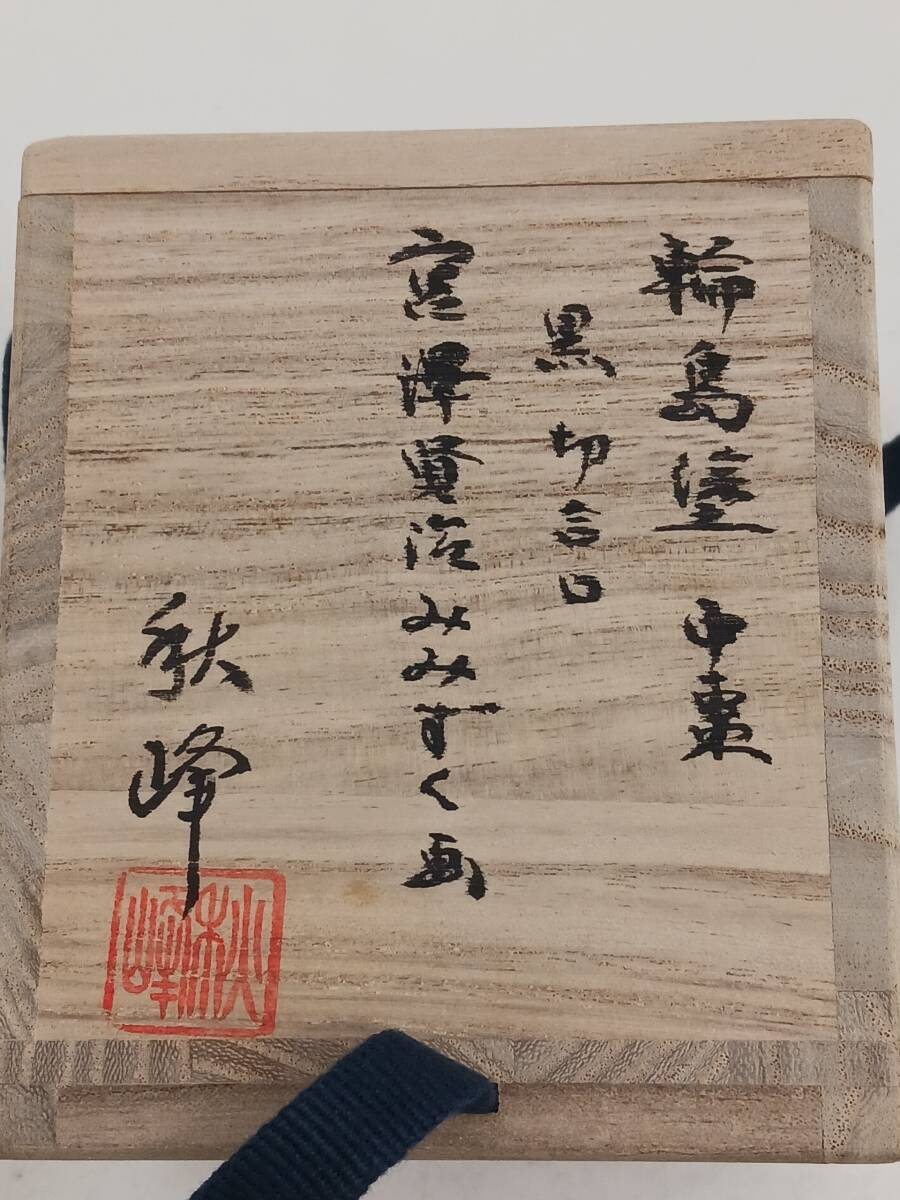 輪島塗 中棗
黒切合口
宮澤賢治みみずく画
秋峰
秋峰